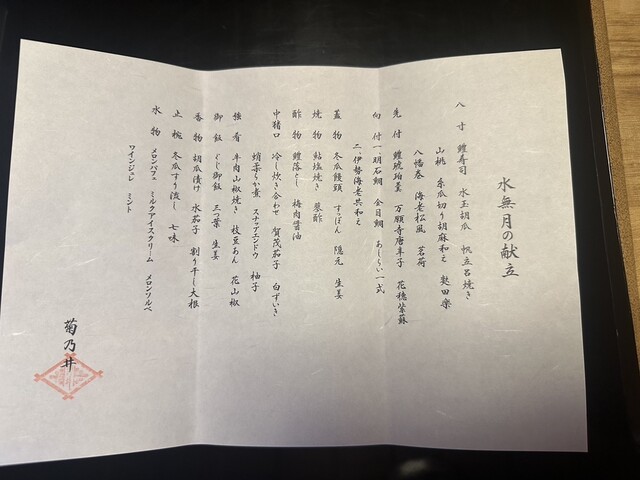 水無月の献立
八寸 鱧寿司 水玉胡瓜 帆立呂焼き
山桃 糸瓜切り胡麻和え 麩田楽
八幡巻 海老松風 茗荷
先付 鱧琥珀羹 万願寺唐辛子 花穂紫蘇
向付 一、明石鯛 金目鯛 あしらい一式
二、伊勢海老共和え
蓋物 冬瓜饅頭 すっぽん 隠元 生姜
焼物 鮎塩焼き 蓼酢
酢物 鱧落とし 梅肉醤油
中猪口 冷し炊き合わせ 賀茂茄子 白ずいき
蛸柔らか煮 スナップエンドウ 柚子
強肴 牛肉山椒焼き 枝豆あん 花山椒
御飯 ぐじ御飯 三つ葉 生姜
香物 胡瓜漬け 水茄子 割り干し大根
止椀 冬瓜すり流し 七味
水物 メロンパフェ ミルクアイスクリーム メロンソルベ
ワインジュレ ミント
菊乃井